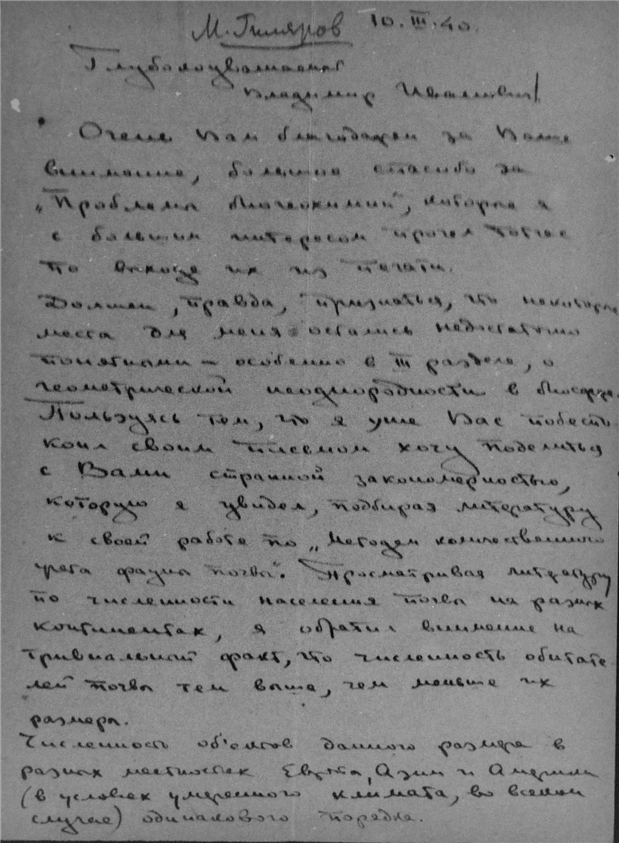 М. Гиляров 10.III.40.
Глубокоуважаемый
Владимир Иванович!
Очень Вам благодарен за Ваше
внимание, большое спасибо за
„Проблемы биогеохимии", которые я
с большим интересом прочел тотчас
по выходе их из печати.
Должен, правда, признаться, что некоторые
места для меня остались недостаточно
понятными – особенно в III разделе, о
геометрической неоднородности в биосфере.
Пользуясь тем, что я уже Вас побеспо-
коил своим письмом хочу поделиться
с Вами странной закономерностью,
которую я увидел, подбирая литературу
к своей работе по „Методам количественного
учета фауны почвы". Просматривая литературу
по численности населения почвы на разных
континентах, я обратил внимание на
тривиальный факт, что численность обитате-
лей почвы тем выше, чем меньше их
размеры.
Численность об'ектов данного размера в
разных местностях Европы, Азии и Америки
(в условиях умеренного климата, во всяком
случае) одинакового порядка.